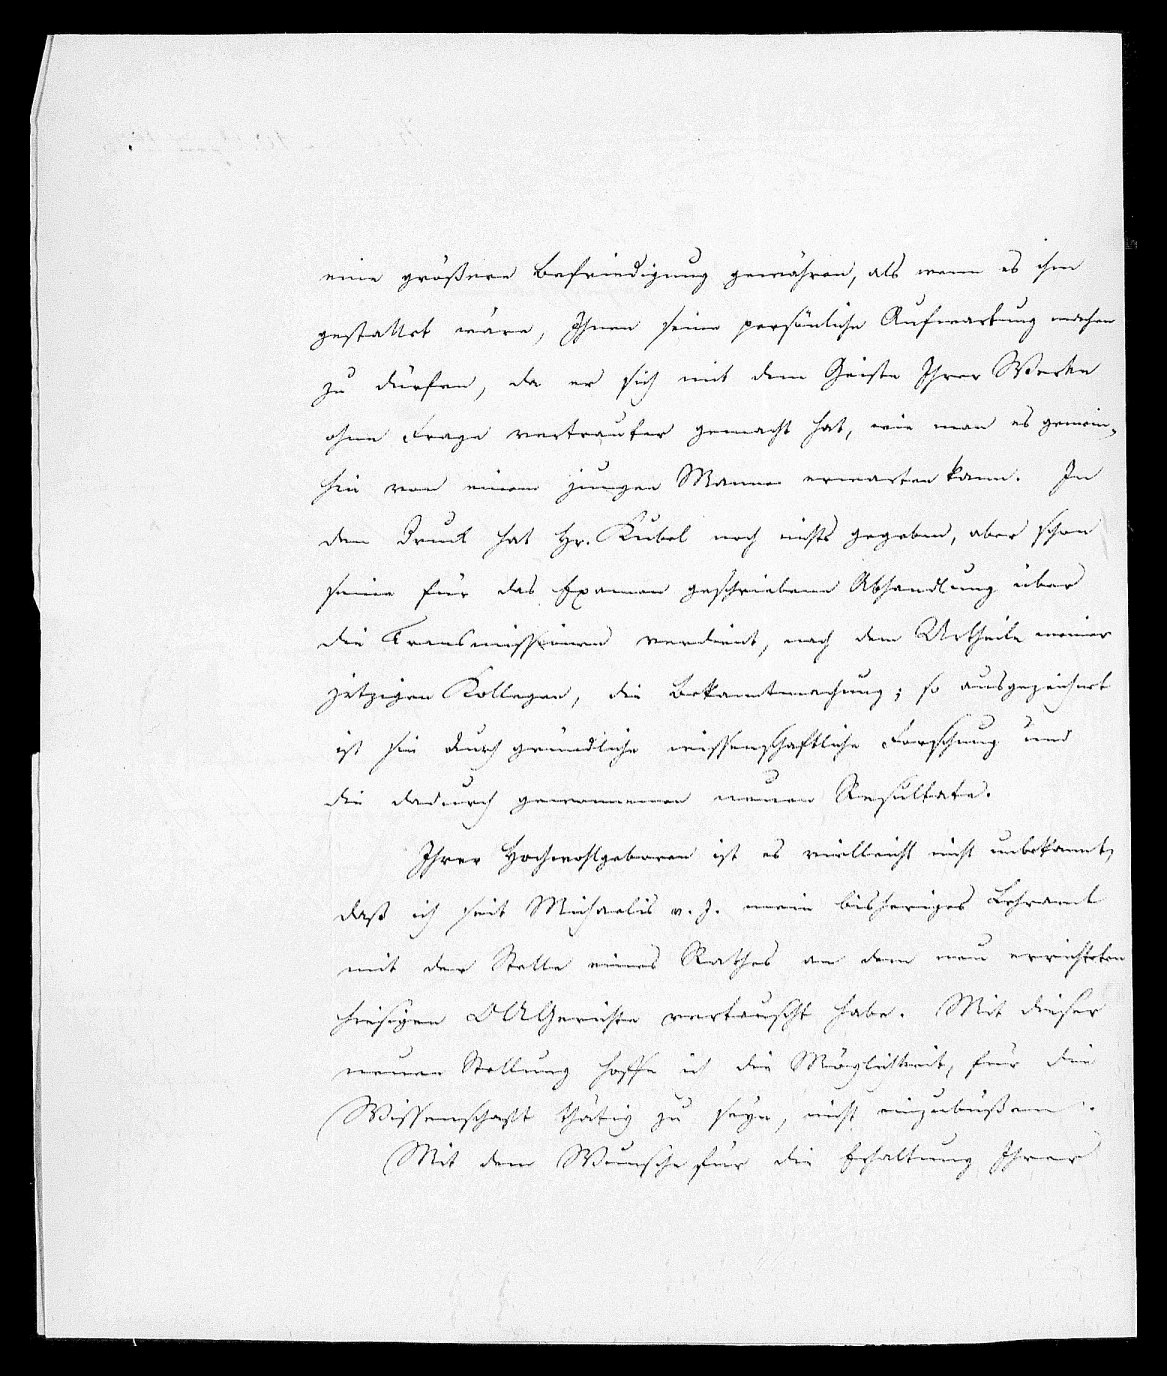 eine größere Befriedigung gewähren, als wenn es ihm
gestattet wäre, Ihnen seine persönliche Aufwartung machen
zu dürfen, da er sich mit dem Geiste Ihrer Werke
ohne Frage vertrauter gemacht hat, wie man es gemein-
hin von einem jungen Manne erwarten kann. In
den Druck hat Hr. Kubel noch nichts gegeben, aber schon
seine für das Examen geschriebene Abhandlung über
die Transmissionen verdient, nach dem Urtheile meiner
jetzigen Kollegen, die Bekanntmachung; so ausgezeichnet
ist sie durch gründliche wissenschaftliche Forschung und
die dadurch gewonnenen neuen Resultate.
Ihrer Hochwohlgeboren ist es vielleicht nicht unbekannt,
daß ich seit Michaelis v. J. mein bisheriges Lehramt
mit der Stelle eines Rathes an dem neu errichteten
hiesigen OAGerichte vertauscht habe. Mit dieser
neuen Stellung hoffe ich die Möglichkeit, für die
Wissenschaft thätig zu seyn, nicht einzubüßen.
Mit dem Wunsche für die Erhaltung Ihrer